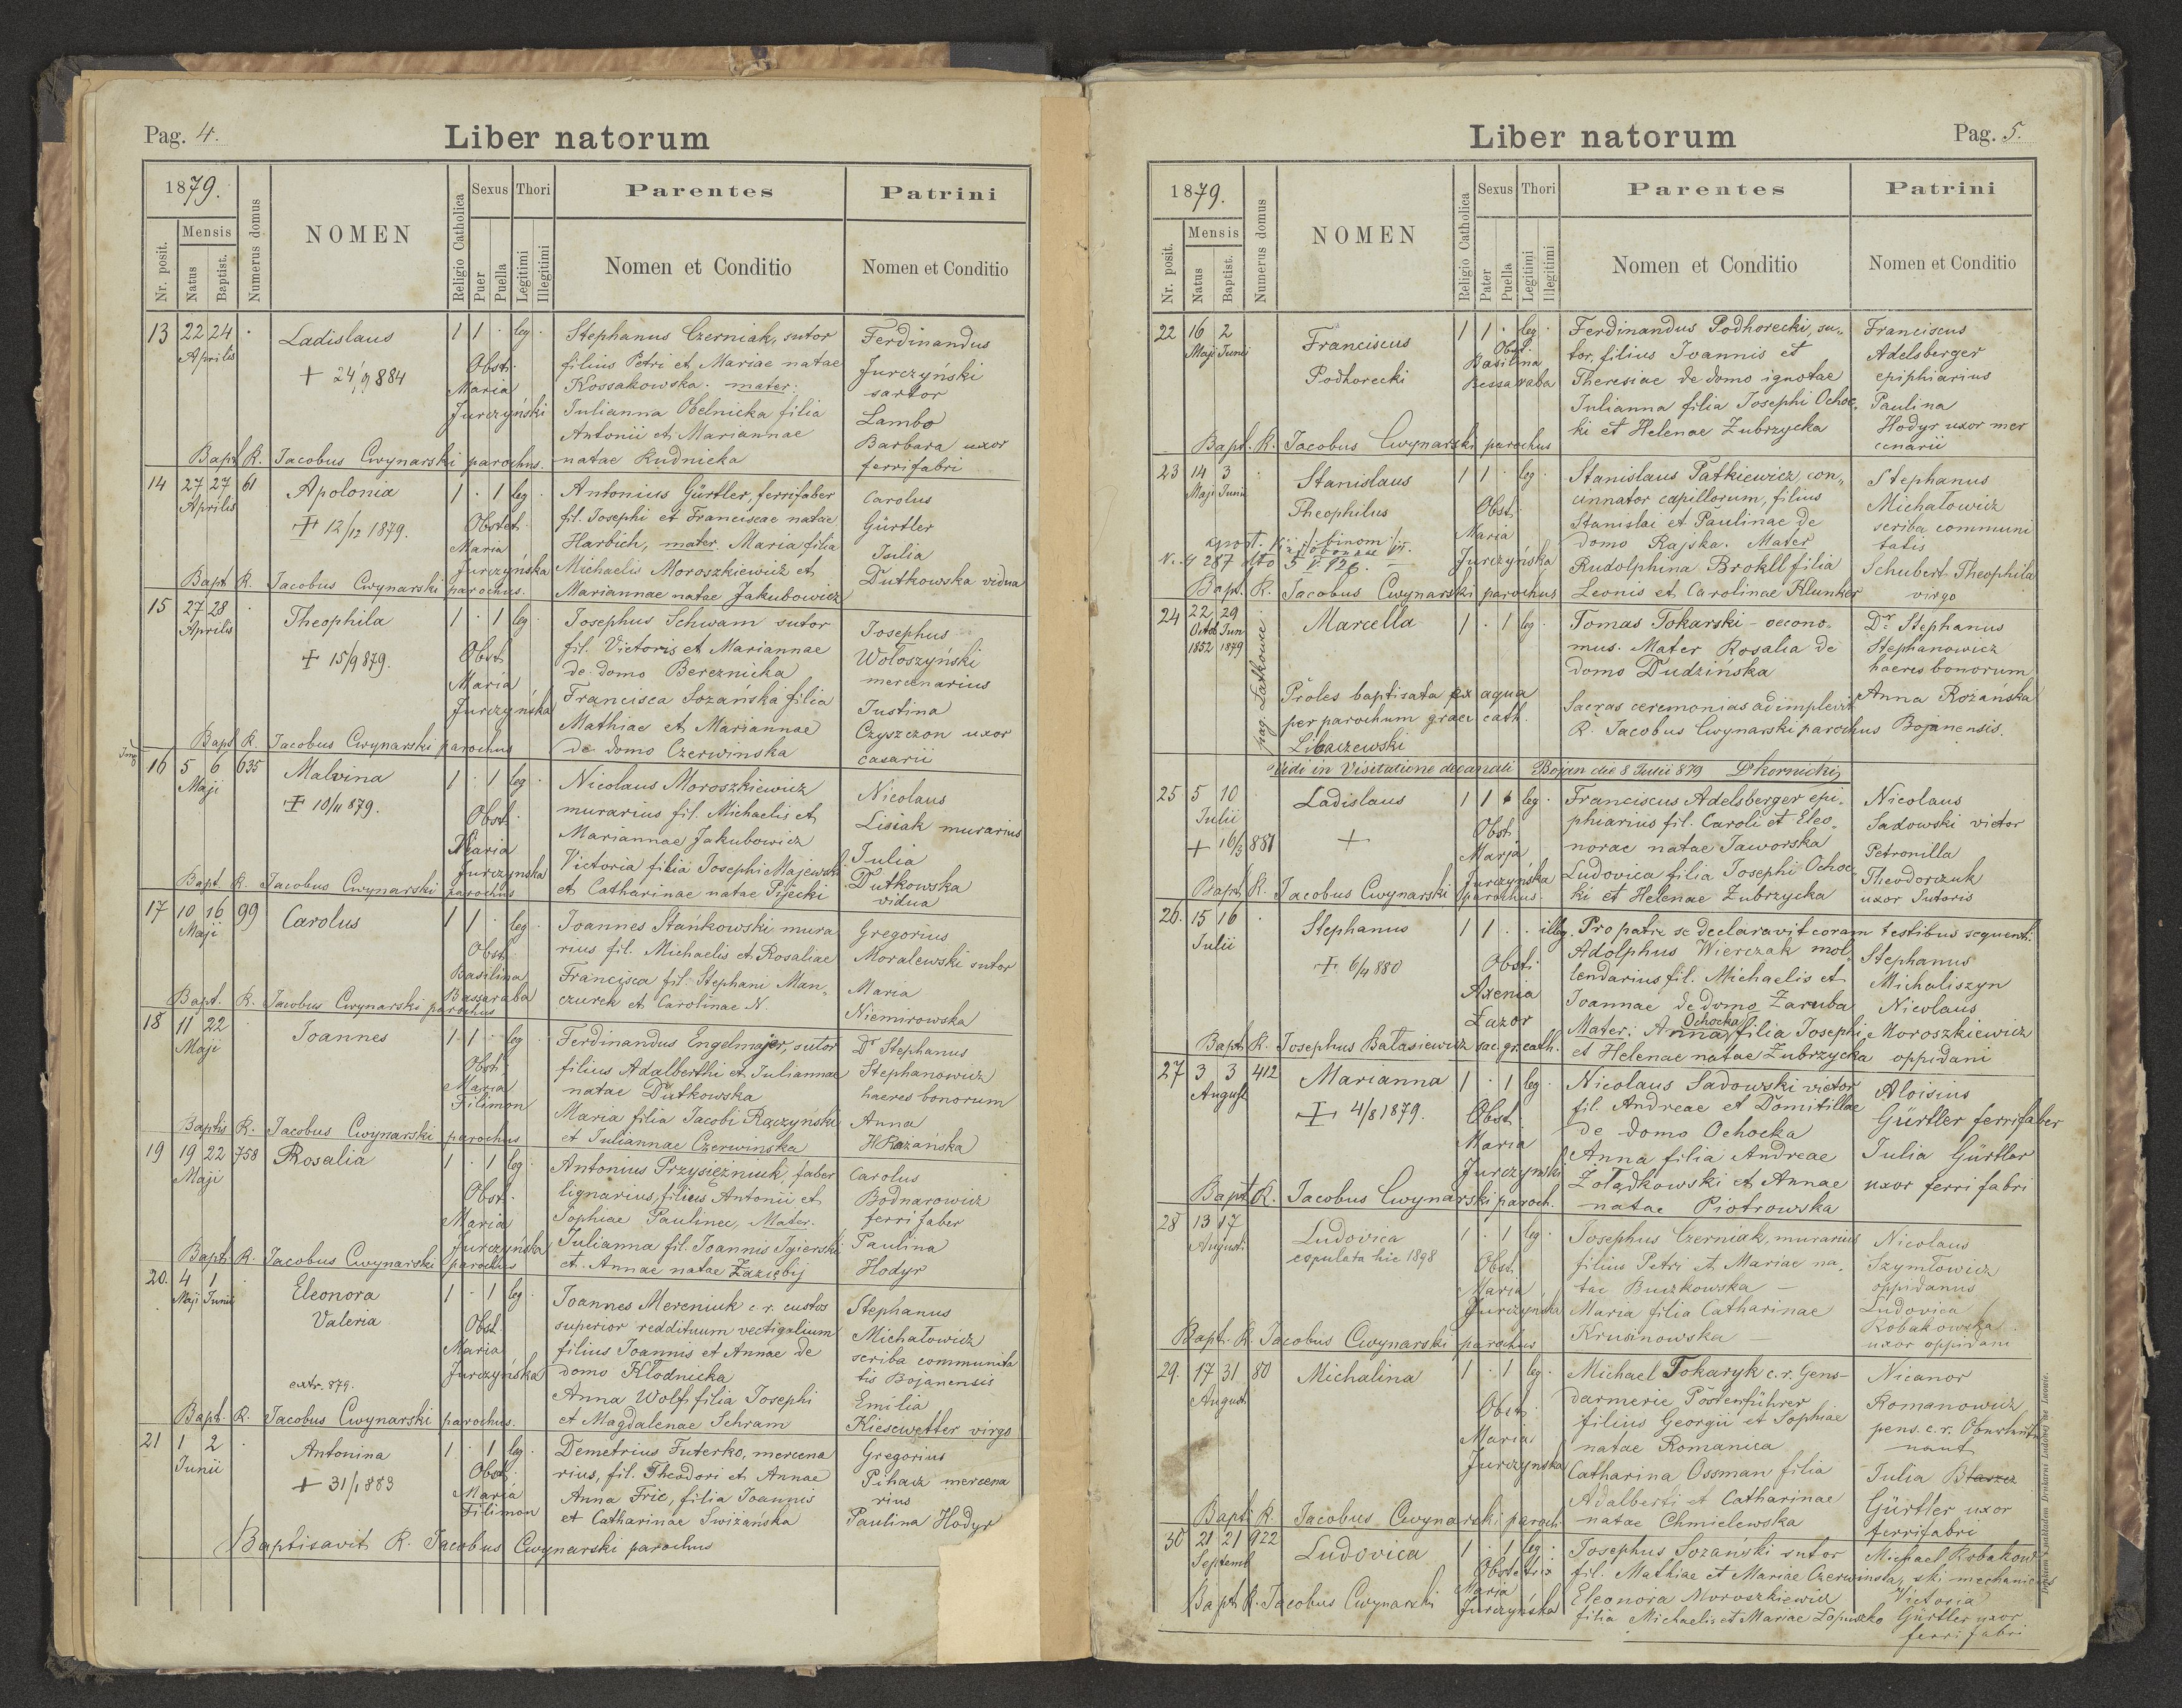 Pag. 4.
Liber natorum
1879.
Nr. posit.
Mensis
Natus
Baptist.
Numerus domus
NOMEN
Religio Catholica
Sexus
Puer
Puella
Thori
Legitimi
Illegitimi
Parentes
Nomen et Conditio
Patrini
Nomen et Conditio
13 22 24 Ladislaus 1 1 · leg · Stephanus Czerniak, sutor Ferdinandus
Aprilis Obst. filius Petri et Mariae natae Jurczyński
+ 24/9 884 Maria Kossakowska. mater. sartor
Jurczyński Julianna Obelnicka filia Lambo
Antonii et Mariannae Barbara uxor
Bapt R. Jacobus Cwynarski parochus. natae Rudnicka ferrifabri
14 27 27 61 Apolonia 1 · 1 leg Antonius Gürtler, ferrifaber Carolus
Aprilis Obstet. fil. Josephi et Franciscae natae Gürtler
+ 12/12 1879. Maria Harbich, mater Maria filia Julia
Jurczyńska Michaelis Moroszkiewicz et Dutkowska vidua
Bapt R. Jacobus Cwynarski parochus. Mariannae natae Jakubowicz
15 27 28 Theophila 1 · 1 leg Josephus Schwam sutor Josephus
Aprilis Obst. fil. Victoris et Mariannae Wołoszyński
+ 15/9 879. Maria de domo Bereznicka mercenarius
Jurczyńska Francisca Sozańska filia Justina
Mathiae et Mariannae Czyszczon uxor
Bapt R. Jacobus Cwynarski parochus de domo Czerwinska casarii
16 5 6 635 Malvina 1 · 1 leg · Nicolaus Moroszkiewicz Nicolaus
Maji Obst. murarius fil. Michaelis et Lisiak murarius
+ 10/11 879. Maria Mariannae Jakubowicz Julia
Jurczynska Victoria filia Josephi Majewski Dutkowska
Bapt. R. Jacobus Cwynarski parochus et Catharinae natae Pijecki vidua
17 10 16 99 Carolus 1 1 · leg · Joannes Stańkowski mura Gregorius
Maji Obst. rius fil. Michaelis et Rosaliae Moralewski sutor
Basilina Francisca fil. Stephani Man- Maria
Bapt. R. Jacobus Cwynarski parochus Bassaraba czurek et Carolinae N. Niemirowska
18 11 22 Joannes 1 1 · leg Ferdinandus Engelmajer, sutor Dr Stephanus
Maji Obst. filius Adalberthi et Juliannae Stephanowicz
Maria natae Dutkowska haeres bonorum
Filimon Maria filia Jacobi Rączyński Anna
Baptis R. Jacobus Cwynarski parochus et Juliannae Czerwinska Rozańska
19 19 22 758 Rosalia 1 · 1 leg Antonius Przysiężniuk, faber Carolus
Maji Obst. lignarius, filius Antonii et Bodnarowicz
Maria Sophiae Paulinec, Mater. ferri faber
Jurczyńska Julianna fil. Joannis Jgierski Paulina
Bapt. R. Jacobus Cwynarski parochus et. Annae natae Zazięby Hodyr
20. 4 1 Eleonora 1 · 1 leg · Joannes Mereniuk c. r. custos Stephanus
Maji Junii Valeria Obst superior reddituum vectigalium Michałowicz
Maria filius Joannis et Annae de scriba communita
Jurczyńska domo Kłodnicka tis Bojanensis
extr. 879. Anna Wolf, filia Josephi Emilia
Bapt. R. Jacobus Cwynarski parochus. et Magdalenae Schram Kiesewetter virgo
21 1 2 Antonina 1 · 1 leg · Demetrius Futerko, mercena Gregorius
Junii Obst. rius, fil. Theodori et Annae Pihacz mercena
+ 31/1 883 Maria Anna Fric, filia Joannis rius
Filimon et Catharinae Swizańska Paulina Hodyr
Baptisavit R. Jacobus Cwynarski parochus
Liber natorum
Pag. 5.
1879.
Nr. posit.
Mensis
Natus
Baptist.
Numerus domus
NOMEN
Religio Catholica
Sexus
Pater
Puella
Thori
Legitimi
Illegitimi
Parentes
Nomen et Conditio
Patrini
Nomen et Conditio
22 16 2 Franciscus 1 1 · leg · Ferdinandus Podhorecki, su- Franciscus
Maji Junii Podhorecki Obst. tor, filius Joannis et Adelsberger
Basilina Theresiae de domo ignotae epiphiarius
Bessaraba Julianna filia Josephi Ochoc- Paulina
Bapt. R. Jacobus Cwynarski parochus ki et Helenae Zubrzycka Hodyr uxor mer
cenarii
23 14 3 Stanislaus 1 1 · leg · Stanislaus Patkiewicz, con- Stephanus
Maji Junii Theophilus Obst. cinnator capillorum, filius Michałowicz
Maria Stanislai et Paulinae de scriba communi
Jurczyńska domo Rajska. Mater tatis
5 V 926. Rudolphina Brokll filia Schubert Theophila
Bapt. R. Jacobus Cwynarski parochus Leonis et Carolinae Klunker virgo
24 22 29 Marcella 1 · 1 leg · Tomas Tokarski - oecono- Dr. Stephanus
Octob Jun mus. Mater Rosalia de Stephanowicz
1852 1879 domo Dudzińska haeres bonorum
pag. Łatkowce
Proles baptisata ex aqua Sacras ceremonias adimplevit Anna Rozańska
per parochum graec cath. R. Jacobus Cwynarski parochus Bojanensis.
Libaczewski
Vidi in Visitatione decanali Bojan die 8 Julii 879 Dr Kornicki
25 5 10 Ladislaus 1 1 · leg · Franciscus Adelsberger epi- Nicolaus
Julii Obst. phiarius fil. Caroli et Eleo- Sadowski victor
+ 16/3 881 + Marja norae natae Jaworska Petronilla
Jurczyńska Ludovica filia Josephi Ochoc- Theodorczuk
Bapt. R. Jacobus Cwynarski parochus ki et Helenae Zubrzycka uxor Sutoris
26. 15 16 Stephanus 1 1 · · illeg. Pro patre se declaravit coram testibus sequenti.
Julii Obst. Adolphus Wierczak mol- Stephanus
+ 6/4 880 Axenia lendarius fil. Michaelis et Michaliszyn
Łazor Joannae de domo Zaruba Nicolaus
Mater: Anna Ochocka filia Josephi Moroszkiewicz
Bapt. R. Josephus Batasiewicz sac. gr. cath. et Helenae natae Zubrzycka oppidani
27 3 3 412 Marianna 1 · 1 leg · Nicolaus Sadowski victor Aloisius
August + 4/8 1879. Obst fil. Andreae et Domitillae Gürtler ferrifaber
Maria de domo Ochocka Julia Gürtler
Jurczynski Anna filia Andreae uxor ferri fabri
Bapt R. Jacobus Cwynarski paroch. Żołądkowski et Annae
natae Piotrowska
28 13 17 Ludovica 1 · 1 leg · Josephus Czerniak, murarius Nicolaus
Augusti copulata hic 1898 Obst. filius Petri et Mariae na- Szymłowicz
Maria tae Buczkowska - oppidanus
Jurczyńska Maria filia Catharinae Ludovica
Bapt. R. Jacobus Cwynarski parochus Krusinowska - Robakowska
uxor oppidani
29. 17 31 80 Michalina 1 · 1 leg · Michael Tokaryk c. r. Gens- Nicanor
August Obst. darmerie Postenführer Romanowicz
Maria filius Georgii et Sophiae pens. c. r.
Jurczynska natae Romanica Julia
Catharina Ossman filia Gürtler uxor
Adalberti et Catharinae ferrifabri
Bapt. R. Jacobus Cwynarski paroch natae Chmielewska
30 21 21 922 Ludovica 1 · 1 leg · Josephus Sozański sutor Michael Robakow
Septemb. Obstetrix fil. Mathiae et Mariae Czerwinska, ski mechanicus
Maria Eleonora Moroszkiewicz Victoria
Bapt R. Jacobus Cwynarski Jurczyńska filia Michaelis et Mariae Lopuszko Gürtler uxor
ferri fabri
Drukiem i nakładem Drukarni Ludowej we Lwowie.